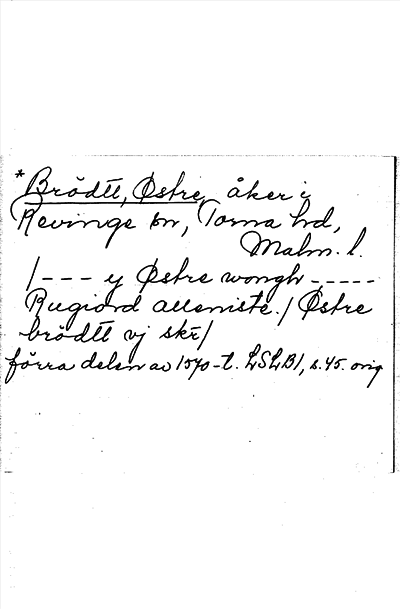 *Brödtt, Østre, åker i
Revinge sn, Torna hd,
Malm. l.
/--- y Østre wongh -----
Rugiord allemiste./ Østre
brödtt vj skr/
förra delen av 1570-t. LSLB1, s.45. orig